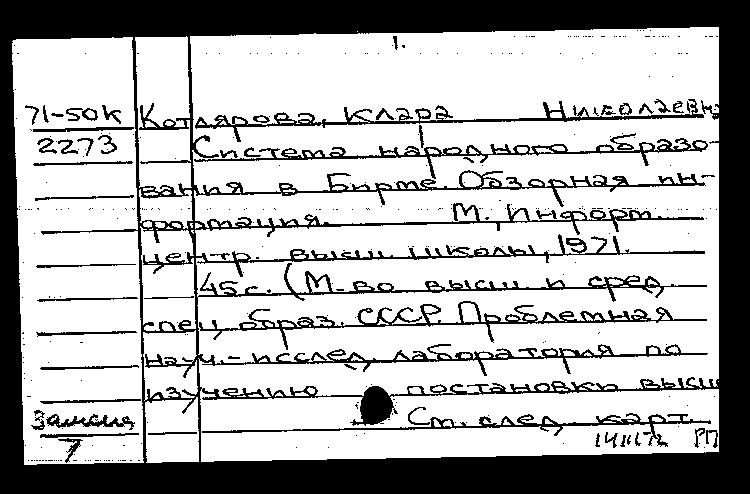 1.
71-50К Котлярова, Клара Николаевна
2273 Система народного образо-
вания в Бирме. Обзорная ин-
формация. М., Информ.
центр. высш. школы, 1971.
45 с. (М-во высш. и сред.
спец. образ. СССР. Проблемная
науч.-исслед. лаборатория по
изучению постановки высш
Замена См. след. карт.
7
РП